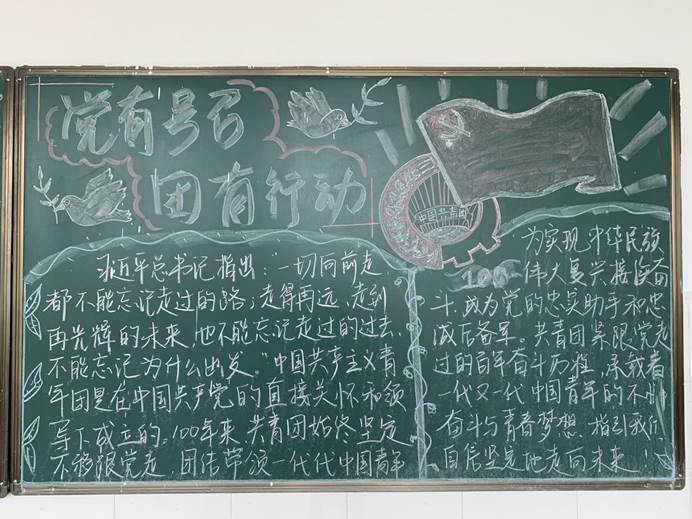 党有号召
团有行动
中国共青团
100
习近平总书记指出:“一切向前走,
都不能忘记走过的路;走得再远、走到
再光辉的未来,也不能忘记走过的过去,
不能忘记为什么出发。”中国共产主义青
年团是在中国共产党的直接关怀和领
导下成立的。100年来,共青团始终坚定
不移跟党走,团结带领一代代中国青年
为实现中华民族
伟大复兴接续奋
斗,成为党的忠实助手和忠
诚后备军。共青团紧跟党走
过的百年奋斗历程,承载着
一代又一代中国青年的不懈
奋斗与青春梦想,指引我们
自信坚定地走向未来!